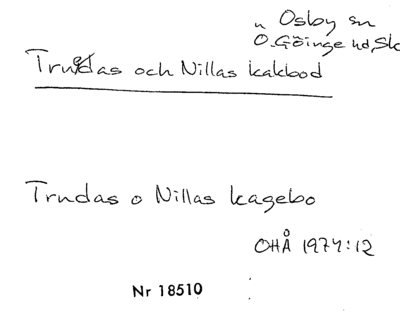 n Osby sn
Ö. Göinge hd, Sk
Trudas och Nillas kakbod
Trudas o Nillas kagebo
OHÅ 1974:12
Nr 18510